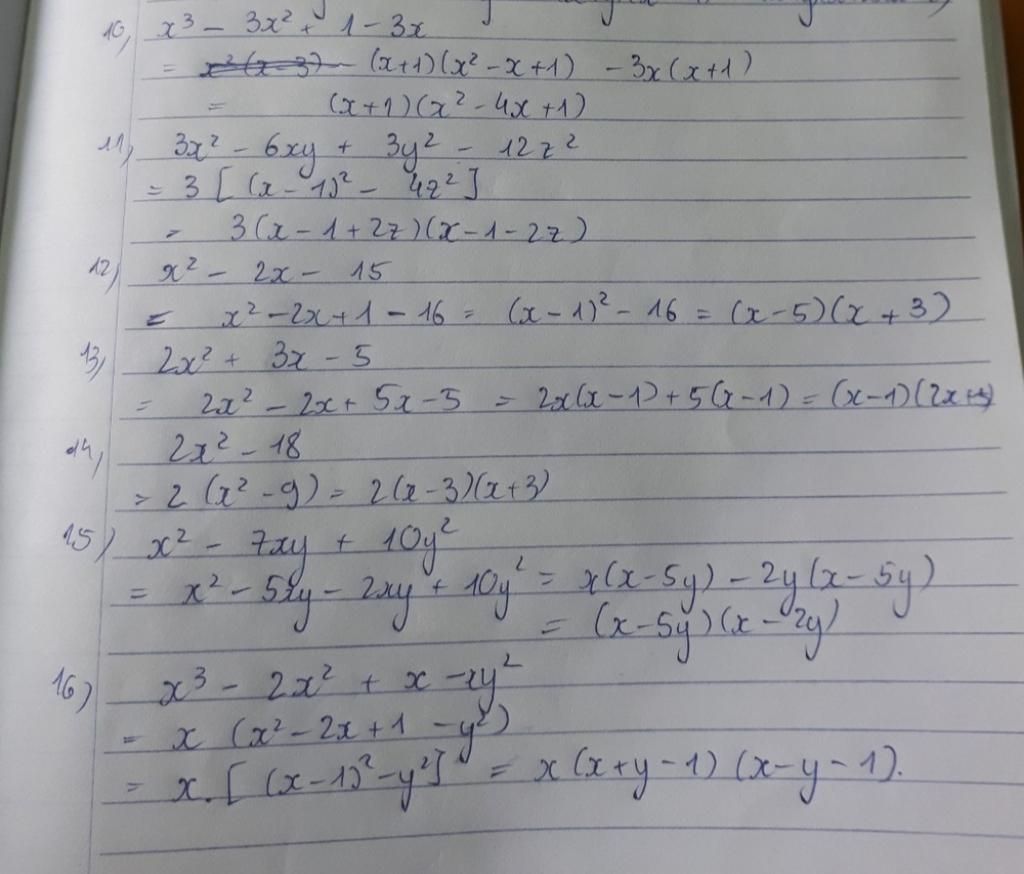 10, x³ - 3x² + 1 - 3x
= (x+1)(x² - x + 1) - 3x(x+1)
= (x+1)(x² - 4x + 1)
11, 3x² - 6xy + 3y² - 12z²
= 3[(x-1)² - 4z²]
= 3(x-1+2z)(x-1-2z)
12, x² - 2x - 15
= x² - 2x + 1 - 16 = (x-1)² - 16 = (x-5)(x+3)
13, 2x² + 3x - 5
= 2x² - 2x + 5x - 5 = 2x(x-1) + 5(x-1) = (x-1)(2x+5)
14, 2x² - 18
= 2(x² - 9) = 2(x-3)(x+3)
15) x² - 7xy + 10y²
= x² - 5xy - 2xy + 10y² = x(x-5y) - 2y(x-5y)
= (x-5y)(x-2y)
16) x³ - 2x² + x - xy²
= x(x² - 2x + 1 - y²)
= x.[(x-1)² - y²] = x(x+y-1)(x-y-1).